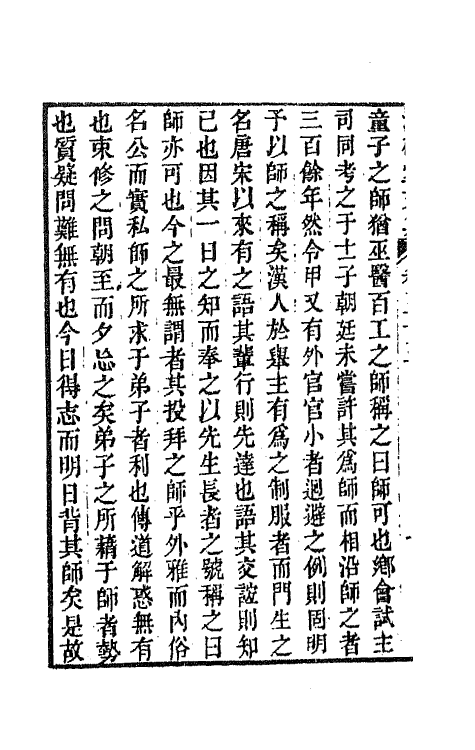 童子之師猶巫醫百工之師稱之曰師可也鄉會試主
司同考之于士子朝廷未嘗許其爲師而相沿師之者
三百餘年然令甲又有外官官小者迴避之例則固明
予以師之稱矣漢人於舉主有爲之制服者而門生之
名唐宋以來有之語其輩行則先達也語其交誼則知
己也因其一日之知而奉之以先生長者之號稱之曰
師亦可也今之最無謂者其投拜之師乎外雅而內俗
名公而實私師之所求于弟子者利也傳道解惑無有
也束修之問朝至而夕忘之矣弟子之所藉于師者勢
也質疑問難無有也今日得志而明日背其師矣是故